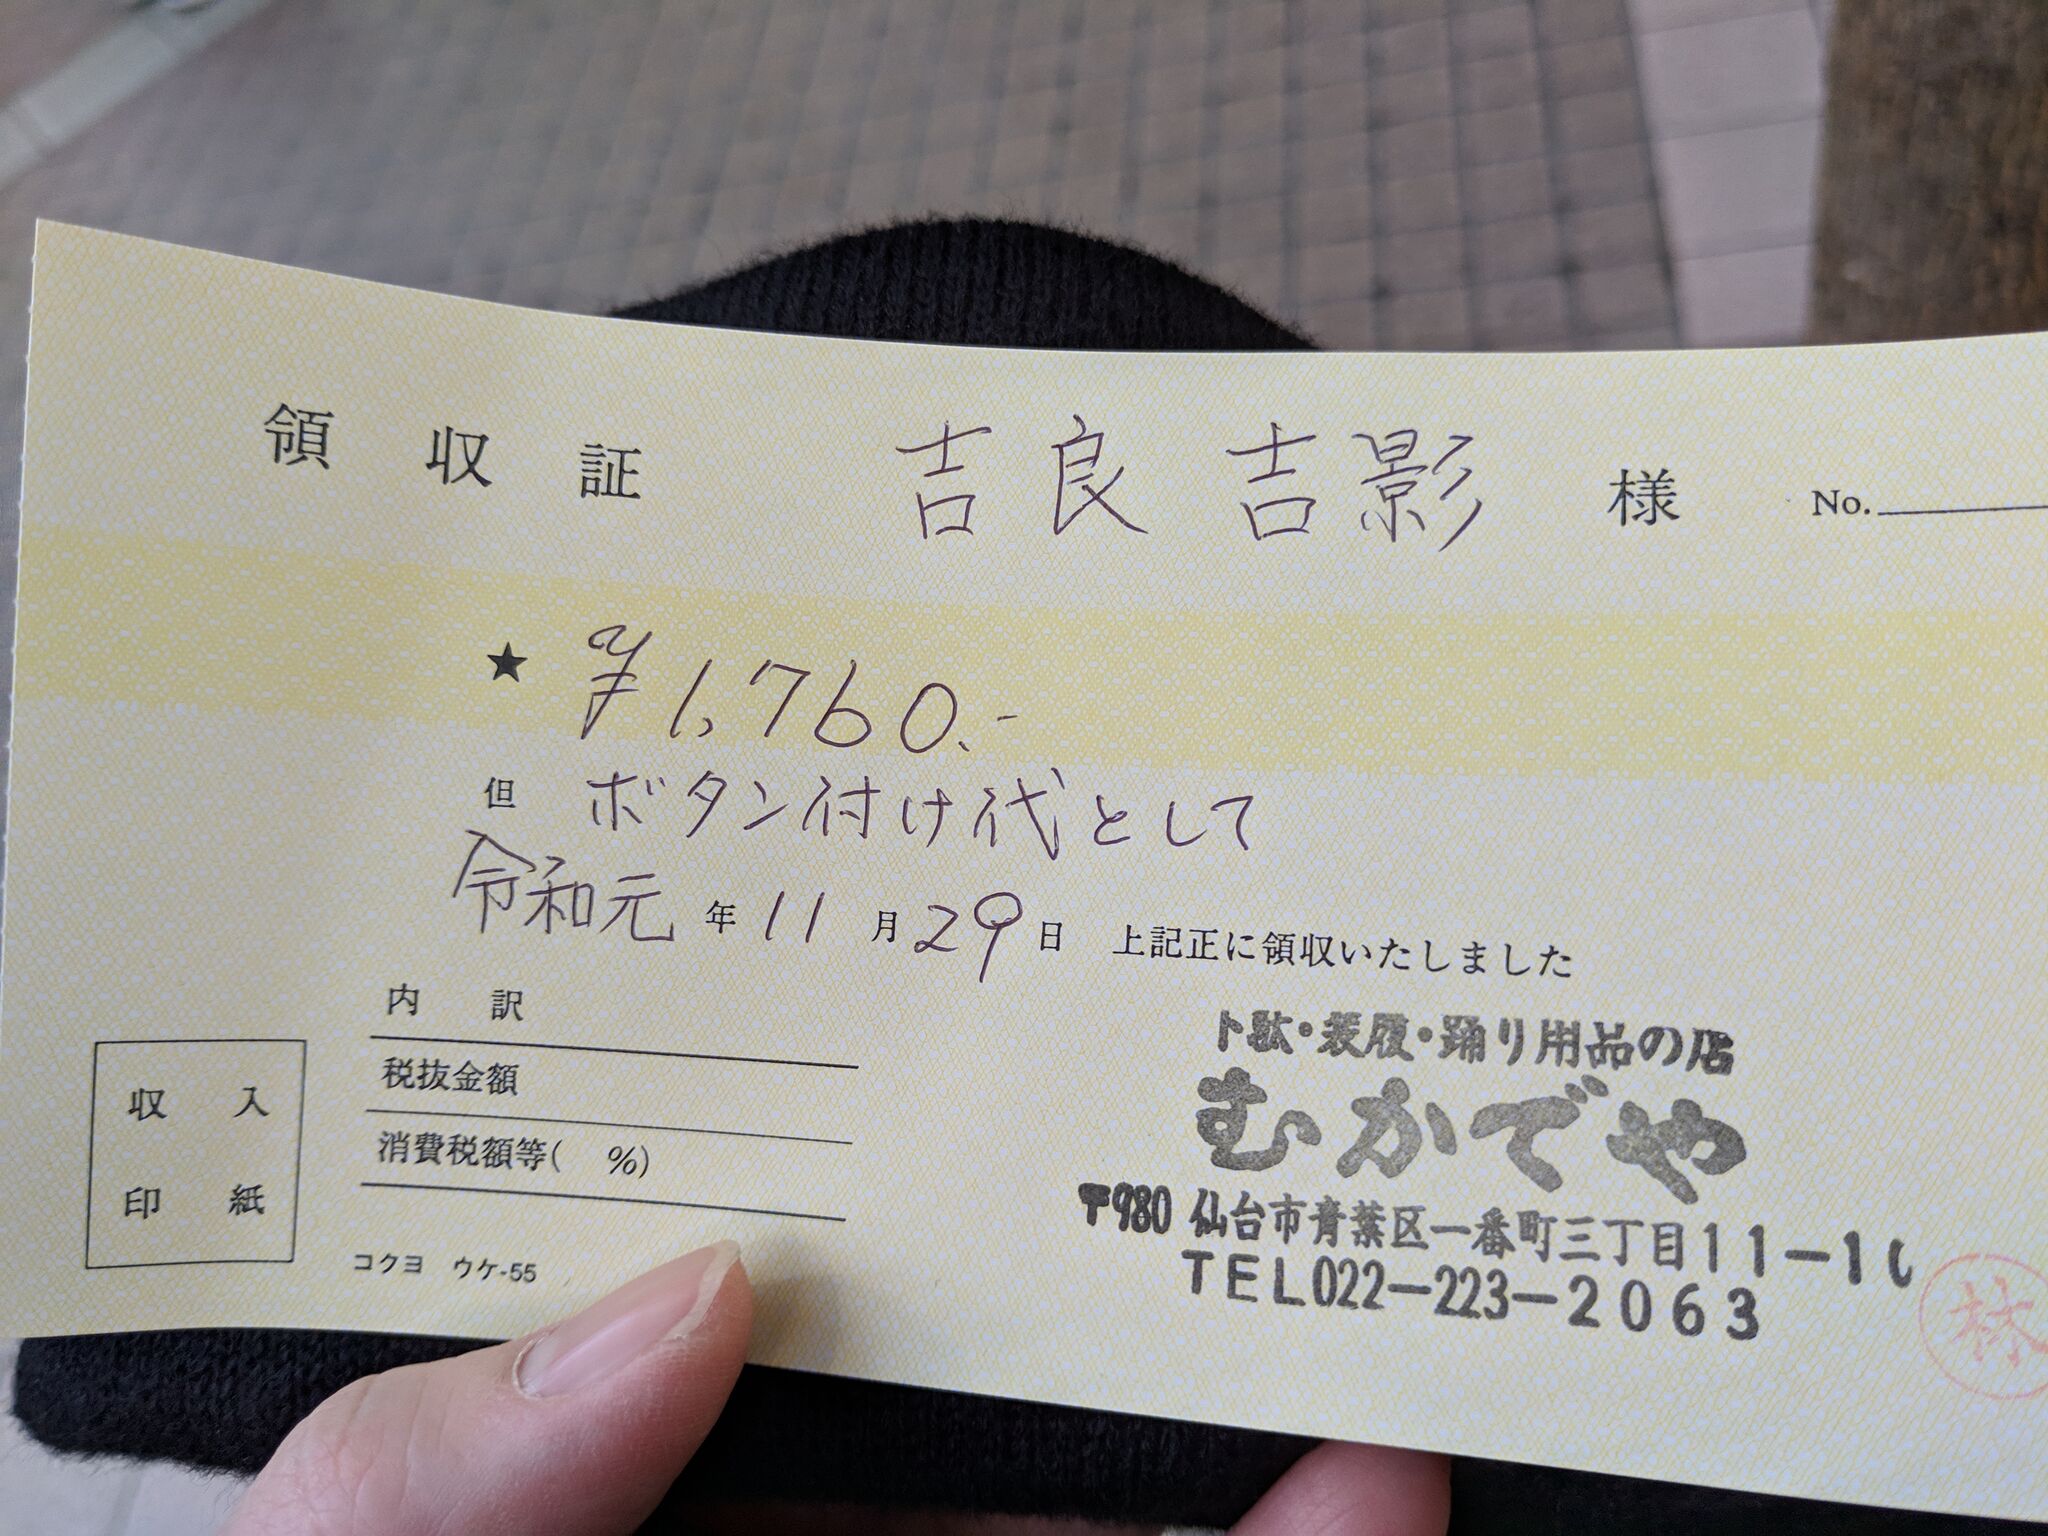 領収証 吉良 吉影 様 No.
★ ¥1,760.-
但 ボタン付け代として
令和元年11月29日 上記正に領収いたしました
内訳
税抜金額
消費税額等( %)
収入
印紙
コクヨ ウケ-55
・履・踊り用品の店
むかでや
〒980 仙台市青葉区一番町三丁目11-1
TEL022-223-2063
林